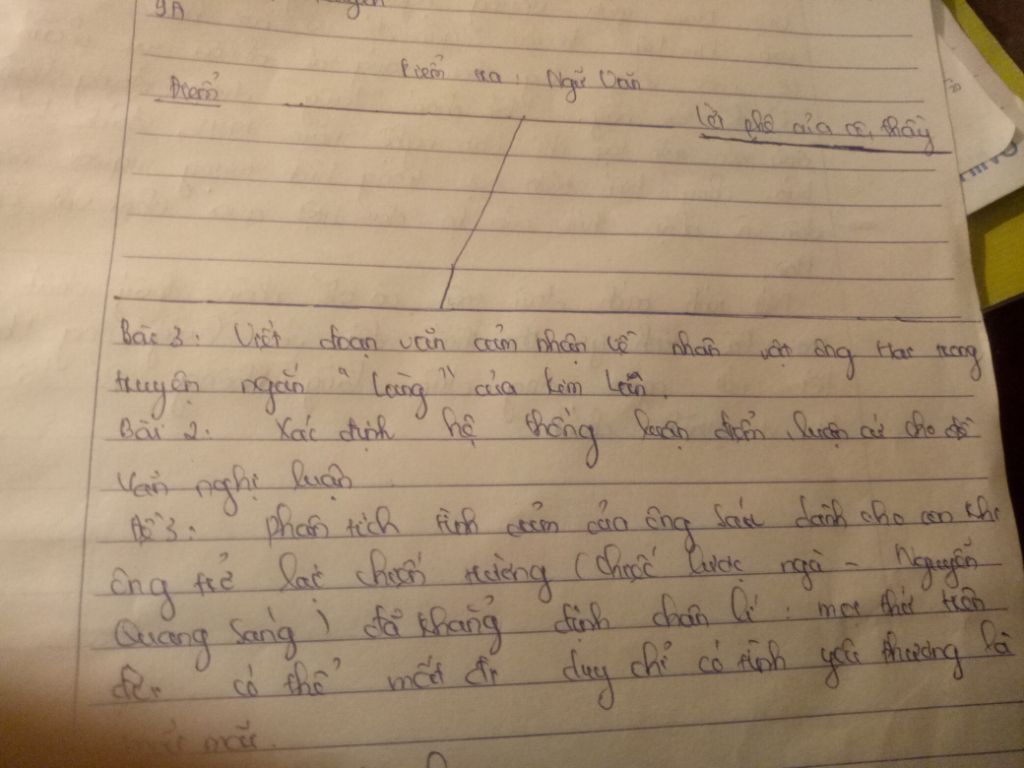 9A
Điểm
Kiểm tra : Ngữ Văn
Lời phê của cô, thầy
Bài 3: Viết đoạn văn cảm nhận về nhân vật ông Hai trong
truyện ngắn "Làng" của Kim Lân.
Bài 2. Xác định hệ thống luận điểm, luận cứ cho đề
văn nghị luận
Đề 3: phân tích tình cảm của ông Sáu dành cho con khi
ông trở lại chiến trường (Chiếc lược ngà - Nguyễn
Quang Sáng) đã khẳng định chân lí: mọi thứ trên
đời có thể mất đi duy chỉ có tình yêu thương là
mãi.